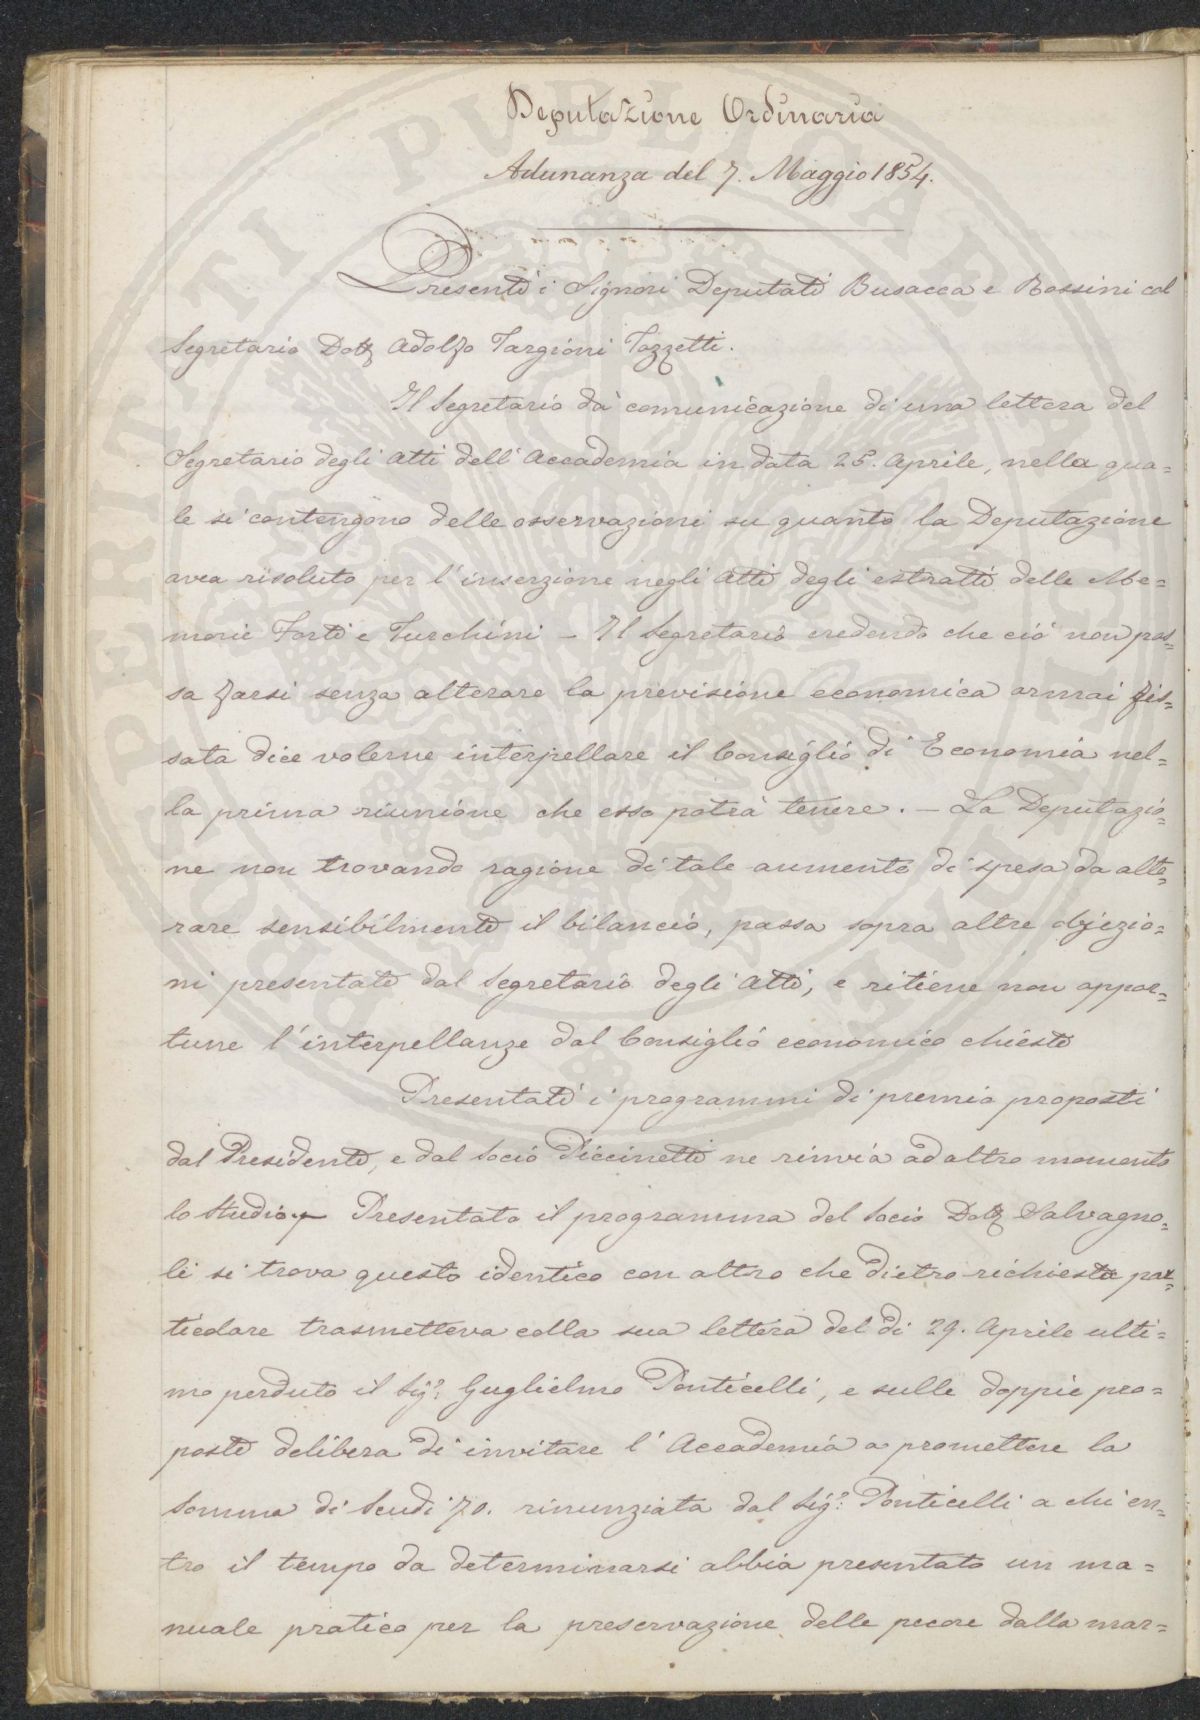 Deputazione Ordinaria
Adunanza del 7. Maggio 1854.
Presenti i Signori Deputati Busacca e Rossini col
Segretario Dott Adolfo Targioni Tozzetti.
Il Segretario dà comunicazione di una lettera del
Segretario degli Atti dell'Accademia in data 25. Aprile, nella qua=
le si contengono delle osservazioni su quanto la Deputazione
avea risoluto per l'inserzione negli Atti degli estratti delle Me=
morie Forti e Turchini – Il Segretario credendo che ciò non pos=
sa farsi senza alterare la previsione economica ormai fis=
sata dice volerne interpellare il Consiglio di Economia nel=
la prima riunione che esso potrà tenere. – La Deputazio=
ne non trovando ragione di tale aumento di spesa da alte=
rare sensibilmente il bilancio, passa sopra altre objezio=
ni presentate dal Segretario degli Atti, e ritiene non oppor=
tune l'interpellanze dal Consiglio economico chieste
Presentati i programmi di premio proposti
dal Presidente, e dal Socio Piccinetti ne rinvia ad altro momento
lo studio, Presentato il programma del Socio Dott Salvagno=
li si trova questo identico con altro che dietro richiesta par=
ticolare trasmetteva colla sua lettera del dì 29. Aprile ulti=
mo perduto il Sigr: Guglielmo Ponticelli, e sulle doppie pro=
poste delibera di invitare l'Accademia a promettere la
Somma di Scudi 70. rinunziata dal Sigr: Ponticelli a chi en=
tro il tempo da determinarsi abbia presentato un ma=
nuale pratico per la preservazione delle pecore dalla mar=
PERITI PVBLICAE